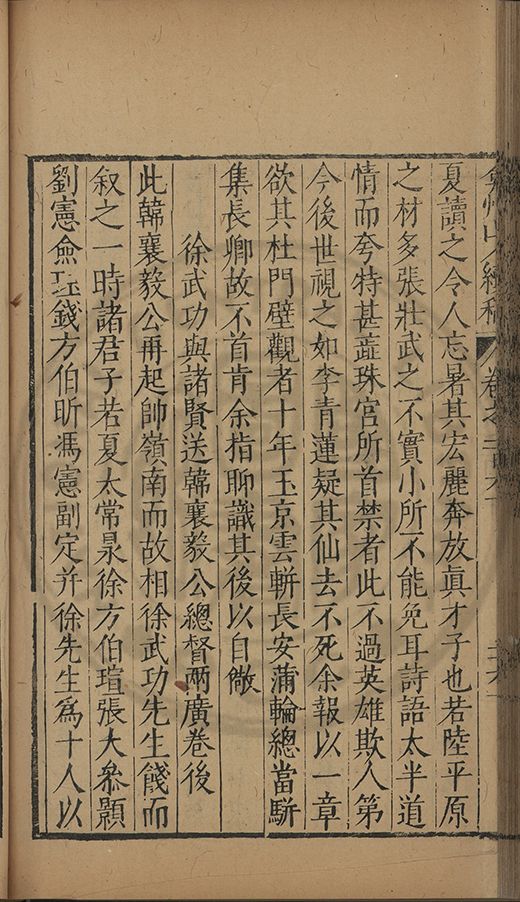 夏讀之令人忘暑其宏麗奔放眞才子也若陸平原
之材多張壯武之不實小所不能免耳詩語太半道
情而夸特甚蘂珠宮所首禁者此不過英雄欺人第
今後世視之如李青蓮疑其仙去不死余報以一章
欲其杜門壁觀者十年玉京雲軿長安蒲輪總當駢
集長卿故不首肯余指聊識其後以自儆
徐武功與諸賢送韓襄毅公總督兩廣卷後
此韓襄毅公再起帥嶺南而故相徐武功先生餞而
叙之一時諸君子若夏太常㫤徐方伯瑄張大叅顥
劉憲僉珏錢方伯昕馮憲副定并徐先生爲十人以